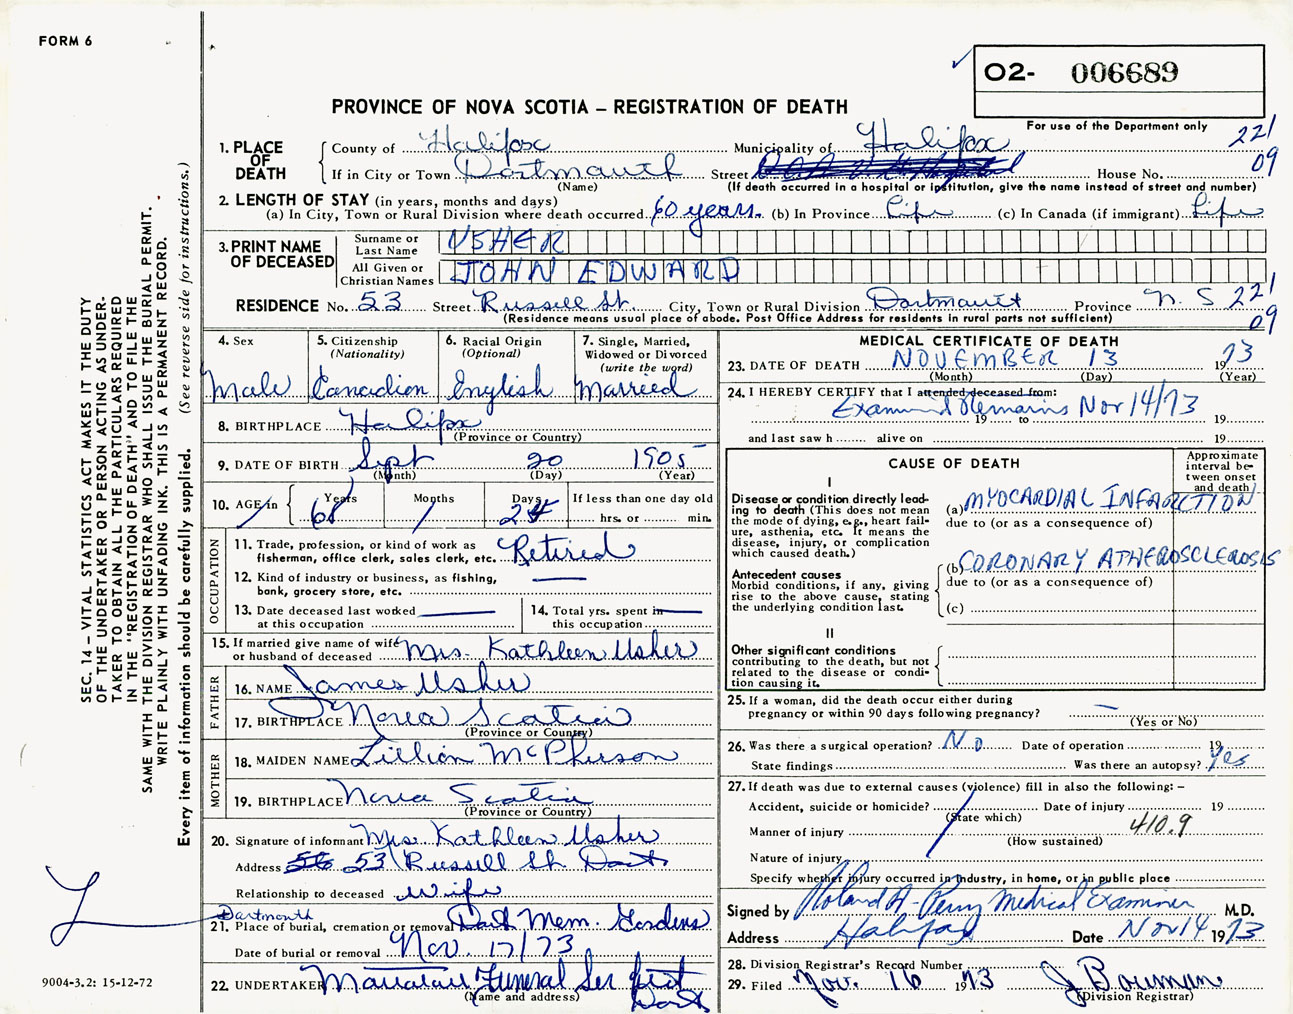 FORM 6
O2- 006689
PROVINCE OF NOVA SCOTIA – REGISTRATION OF DEATH
For use of the Department only
221
09
1. PLACE OF DEATH
County of Halifax Municipality of Halifax
If in City or Town Dartmouth Street House No.
(Name) (If death occurred in a hospital or institution, give the name instead of street and number)
2. LENGTH OF STAY (in years, months and days)
(a) In City, Town or Rural Division where death occurred 60 years. (b) In Province Life (c) In Canada (if immigrant) Life
3. PRINT NAME OF DECEASED
Surname or Last Name USHER
All Given or Christian Names JOHN EDWARD
RESIDENCE No. 53 Street Russell St. City, Town or Rural Division Dartmouth Province N. S 221
09
(Residence means usual place of abode. Post Office Address for residents in rural parts not sufficient)
4. Sex
Male
5. Citizenship (Nationality)
Canadian
6. Racial Origin (Optional)
English
7. Single, Married, Widowed or Divorced (write the word)
Married
8. BIRTHPLACE Halifax
(Province or Country)
9. DATE OF BIRTH Sept 20 1905
(Month) (Day) (Year)
10. AGE in { Years Months Days If less than one day old
68 1 24 hrs. or min.
OCCUPATION
11. Trade, profession, or kind of work as fisherman, office clerk, sales clerk, etc. Retired
12. Kind of industry or business, as fishing, bank, grocery store, etc.
13. Date deceased last worked at this occupation
14. Total yrs. spent in this occupation
15. If married give name of wife or husband of deceased Mrs. Kathleen Usher
FATHER
16. NAME James Usher
17. BIRTHPLACE Nova Scotia
(Province or Country)
MOTHER
18. MAIDEN NAME Lillian McPherson
19. BIRTHPLACE Nova Scotia
(Province or Country)
20. Signature of informant Mrs. Kathleen Usher
Address 53 Russell St. Dart
Relationship to deceased Wife
Dartmouth
21. Place of burial, cremation or removal Dart Mem. Gardens
Date of burial or removal Nov. 17/73
22. UNDERTAKER Funeral Ser
Dart
(Name and address)
MEDICAL CERTIFICATE OF DEATH
23. DATE OF DEATH NOVEMBER 13 1973
(Month) (Day) (Year)
24. I HEREBY CERTIFY that I attended deceased from:
Examined Remains Nov 14/73
19 to 19
and last saw h alive on 19
CAUSE OF DEATH
Approximate interval between onset and death
I
Disease or condition directly leading to death (This does not mean the mode of dying, e.g., heart failure, asthenia, etc. It means the disease, injury, or complication which caused death.)
(a) MYOCARDIAL INFARCTION
due to (or as a consequence of)
Antecedent causes
Morbid conditions, if any, giving rise to the above cause, stating the underlying condition last.
(b) CORONARY ATHEROSCLEROSIS
due to (or as a consequence of)
(c)
II
Other significant conditions
contributing to the death, but not related to the disease or condition causing it.
25. If a woman, did the death occur either during pregnancy or within 90 days following pregnancy? –
(Yes or No)
26. Was there a surgical operation? No Date of operation 19
State findings Was there an autopsy? Yes
27. If death was due to external causes (violence) fill in also the following: –
Accident, suicide or homicide? Date of injury 19
(State which)
Manner of injury 410.9
(How sustained)
Nature of injury
Specify whether injury occurred in industry, in home, or in public place
Signed by Roland A. Perry Medical Examiner M.D.
Address Halifax Date Nov 14 1973
28. Division Registrar's Record Number
29. Filed Nov. 16 1973 J Bowman
(Division Registrar)
SEC. 14 – VITAL STATISTICS ACT MAKES IT THE DUTY
OF THE UNDERTAKER OR PERSON ACTING AS UNDERTAKER TO OBTAIN ALL THE PARTICULARS REQUIRED
IN THE "REGISTRATION OF DEATH" AND TO FILE THE
SAME WITH THE DIVISION REGISTRAR WHO SHALL ISSUE THE BURIAL PERMIT.
WRITE PLAINLY WITH UNFADING INK. THIS IS A PERMANENT RECORD.
Every item of information should be carefully supplied. (See reverse side for instructions.)
9004-3.2: 15-12-72